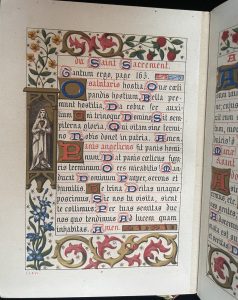 du Saint Sacrement.
Tantum ergo, page 163.
O salutaris hostia, Quæ cœli
pandis hostium, Bella pre-
munt hostilia, Da robur fer auxi-
lium. Uni trinoque Domino Sit sem-
piterna gloria, Qui vitam sine termi-
no Nobis donet in patria. Amen.
Panis angelicus fit panis homi-
num, Dat panis cœlicus figu-
ris terminum, O res mirabilis! Man-
ducat Dominum Pauper, servus et
humilis. Te trina Deitas unaque
poscimus, Sic nos tu visita, sicut
te colimus, Per tuas semitas duc
nos quo tendimus Ad lucem quam
inhabitas. Amen.